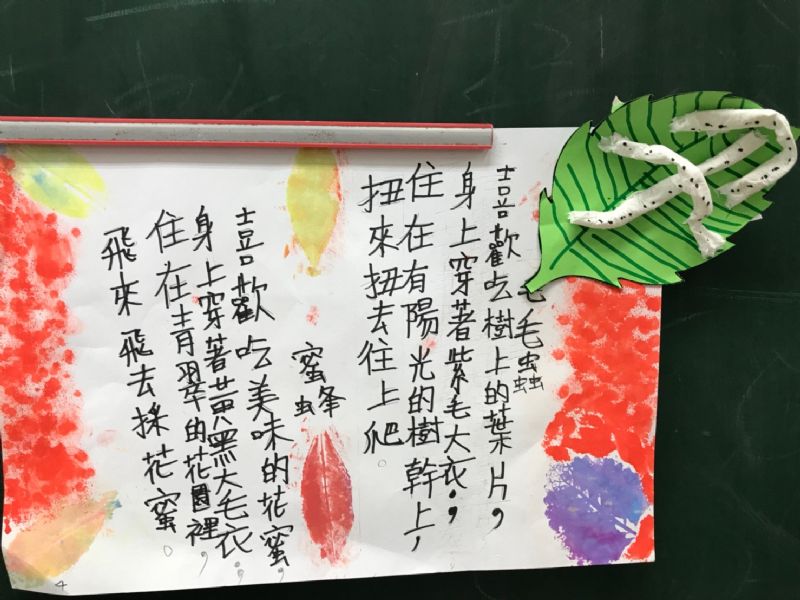 毛毛蟲
喜歡吃樹上的葉片，
身上穿著紫毛大衣，
住在有陽光的樹幹上，
扭來扭去往上爬。
蜜蜂
喜歡吃美味的花蜜，
身上穿著黃黑大毛衣，
住在青翠的花園裡，
飛來飛去採花蜜。
4